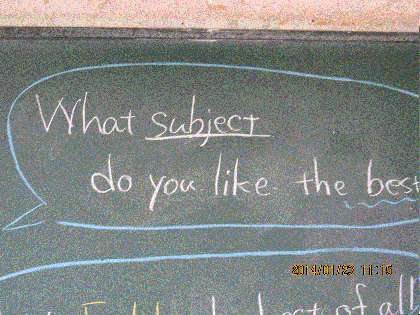 What subject
do you like the best
2014/01/22 11:10
best of all